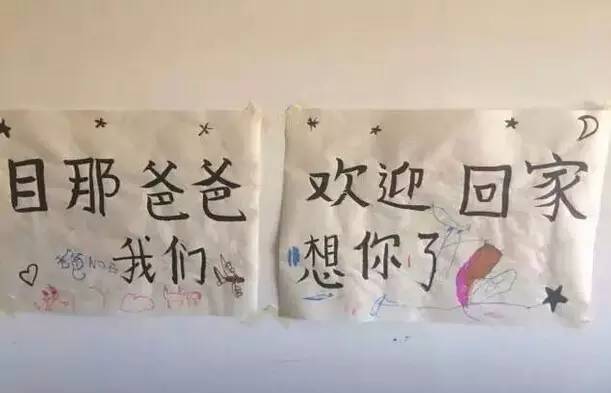 目那爸爸 欢迎回家
我们 想你了
爸爸